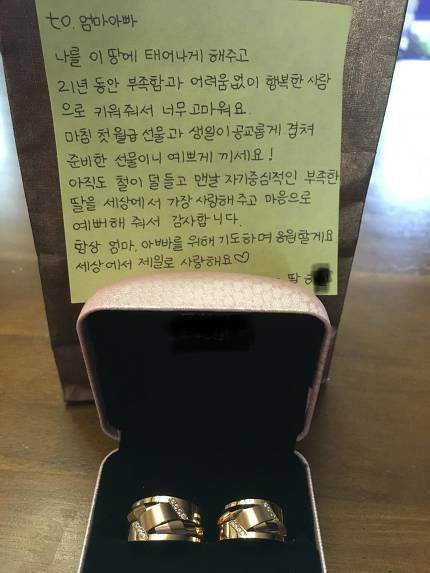 to. 엄마아빠
나를 이 땅에 태어나게 해주고
21년 동안 부족함과 어려움없이 행복한 사람
으로 키워줘서 너무 고마워요
마침 첫 월급 선물과 생일이 공교롭게 겹쳐
준비한 선물이니 예쁘게 끼세요!
아직도 철이 덜 들고 맨날 자기중심적인 부족한
딸을 세상에서 가장 사랑해 주고 마음으로
예뻐해 줘서 감사합니다.
항상 엄마, 아빠를 위해 기도하며 응원할게요
세상에서 제일로 사랑해요♡
딸